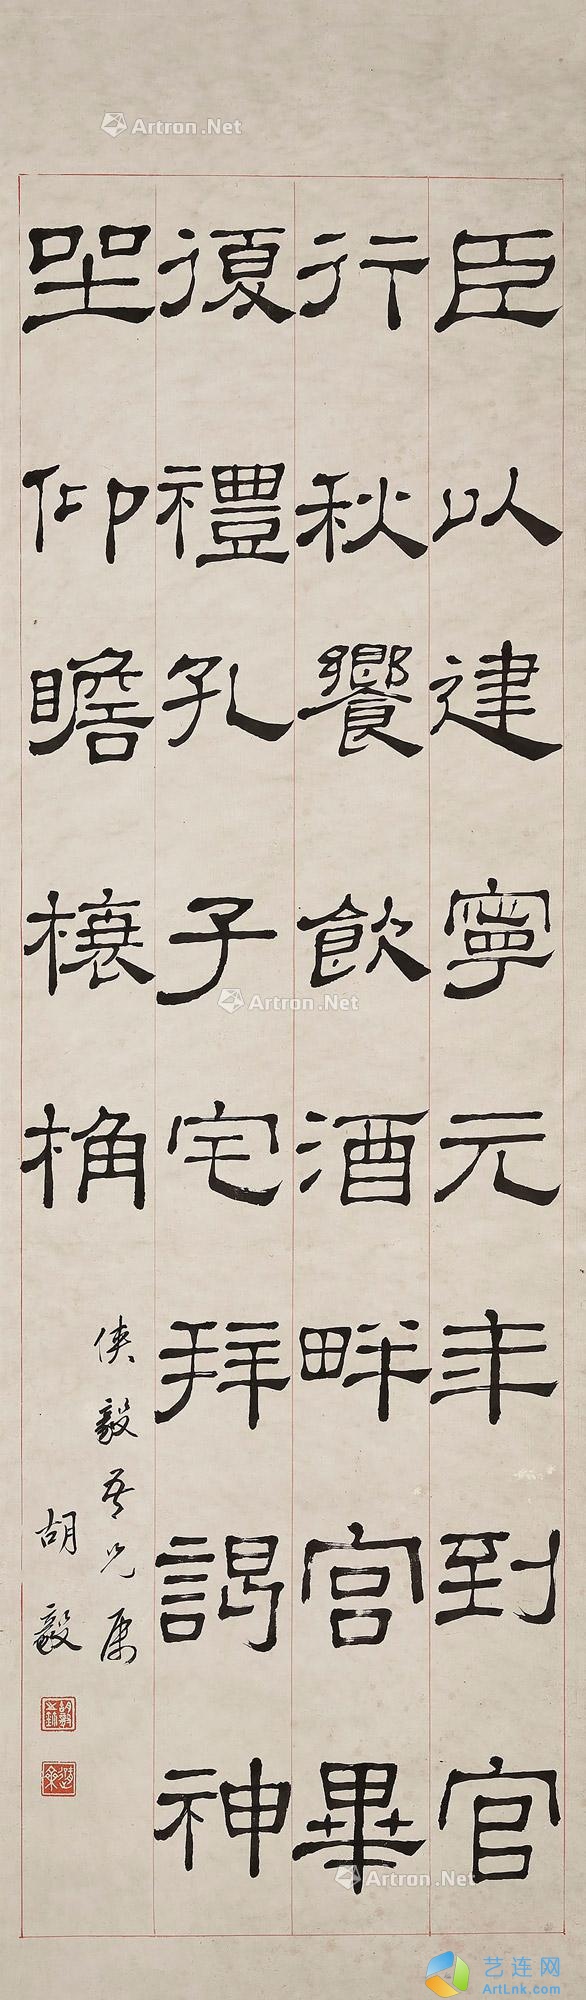 臣以建寧元年到官
行秋饗飲酒畔宮畢
復禮孔子宅拜謁神
坐仰瞻榱桷
俠毅吾兄属
胡毅
Artron.Net
Artron.Net
Artron.Net
艺连网
ArtLnk.com